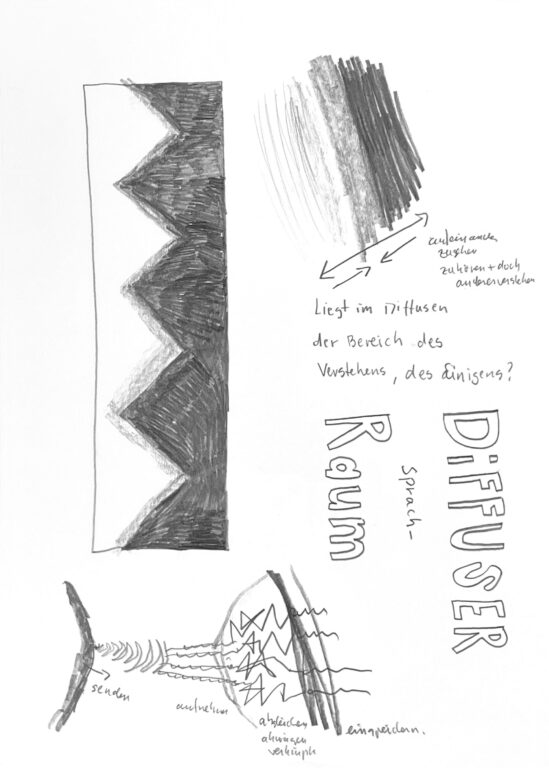 aufeinander
zugehen
zuhören + doch
anders verstehen
Liegt im Diffusen
der Bereich des
Verstehens, des Einigens?
DiFFUSER
Sprach-
Raum
senden
aufnehmen
abgleichen
verknüpfen
einspeichern.